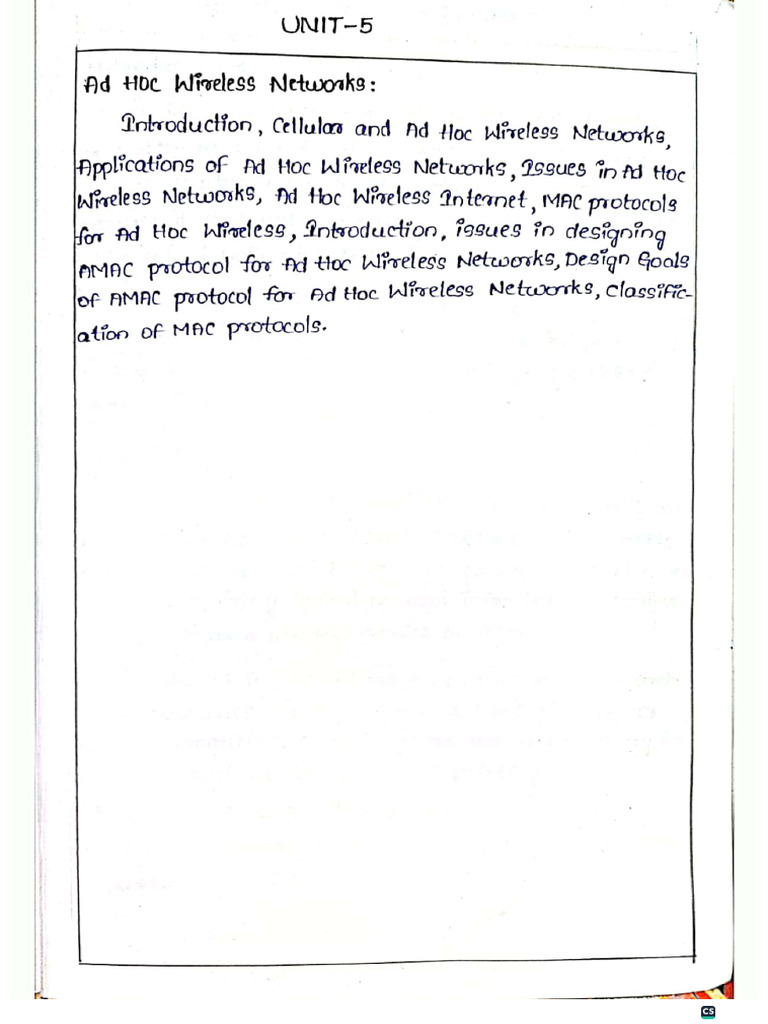 UNIT-5
Ad Hoc Wireless Networks:
Introduction, Cellular and Ad Hoc Wireless Networks,
Applications of Ad Hoc Wireless Networks, Issues in Ad Hoc
Wireless Networks, Ad Hoc Wireless Internet, MAC protocols
for Ad Hoc Wireless, Introduction, issues in designing
AMAC protocol for Ad Hoc Wireless Networks, Design Goals
of AMAC protocol for Ad Hoc Wireless Networks, Classific-
ation of MAC protocols.
CS